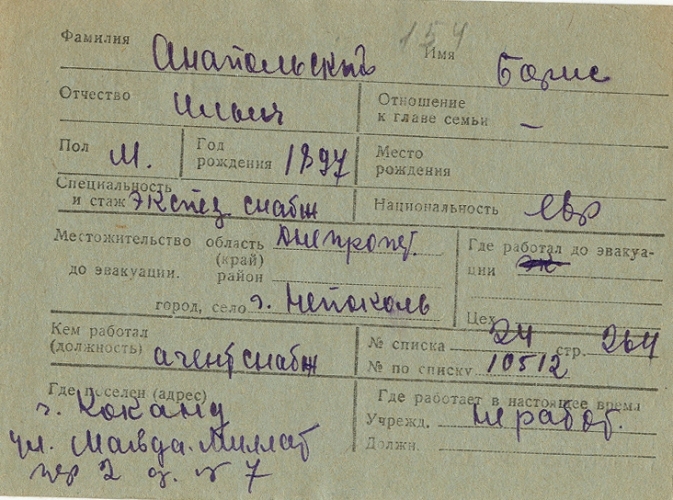 154
Фамилия Анапольскъ Имя Борис
Отчество Ильич Отношение к главе семьи —
Пол М. Год рождения 1897 Место рождения
Специальность и стаж экспед снабж Национальность евр
Местожительство до эвакуации. область (край) Днепропет. Где работал до эвакуации
район
город, село г. Цех
Кем работал (должность) агент снабж № списка 24 стр. 264
№ по списку 10512
Где поселен (адрес) Где работает в настоящее время
г. Коканд Учрежд. не работ.
ул. Мавда-Миллат Должн.
пер 2 д. № 7